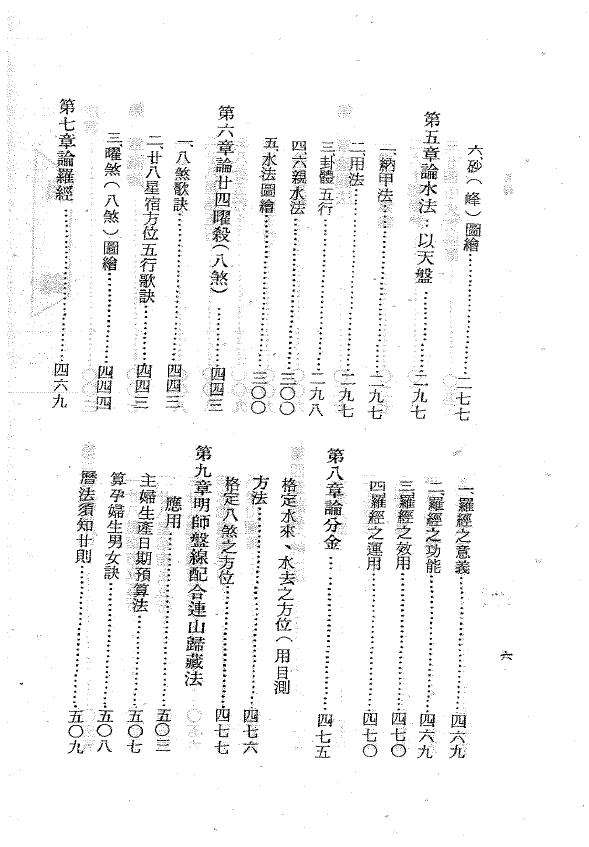 六、砂(峰)圖繪……二七七
第五章論水法：以天盤……二九七
一、納甲法……二九七
二、用法……二九七
三、卦體五行……二九八
四、六親水法……三〇〇
五、水法圖繪……三〇〇
第六章論廿四曜殺(八煞)……四四三
一、八煞歌訣……四四三
二、廿八星宿方位五行歌訣……四四三
三、曜煞(八煞)圖繪……四四四
第七章論羅經……四六九
一、羅經之意義……四六九
二、羅經之功能……四六九
三、羅經之效用……四七〇
四、羅經之運用……四七〇
第八章論分金……四七五
格定水來、水去之方位(用目測
方法……四七六
格定八煞之方位……四七七
第九章明師盤線配合連山歸藏法
應用……五〇三
主婦生產日期預算法……五〇七
算孕婦生男女訣……五〇八
曆法須知廿則……五〇九
六